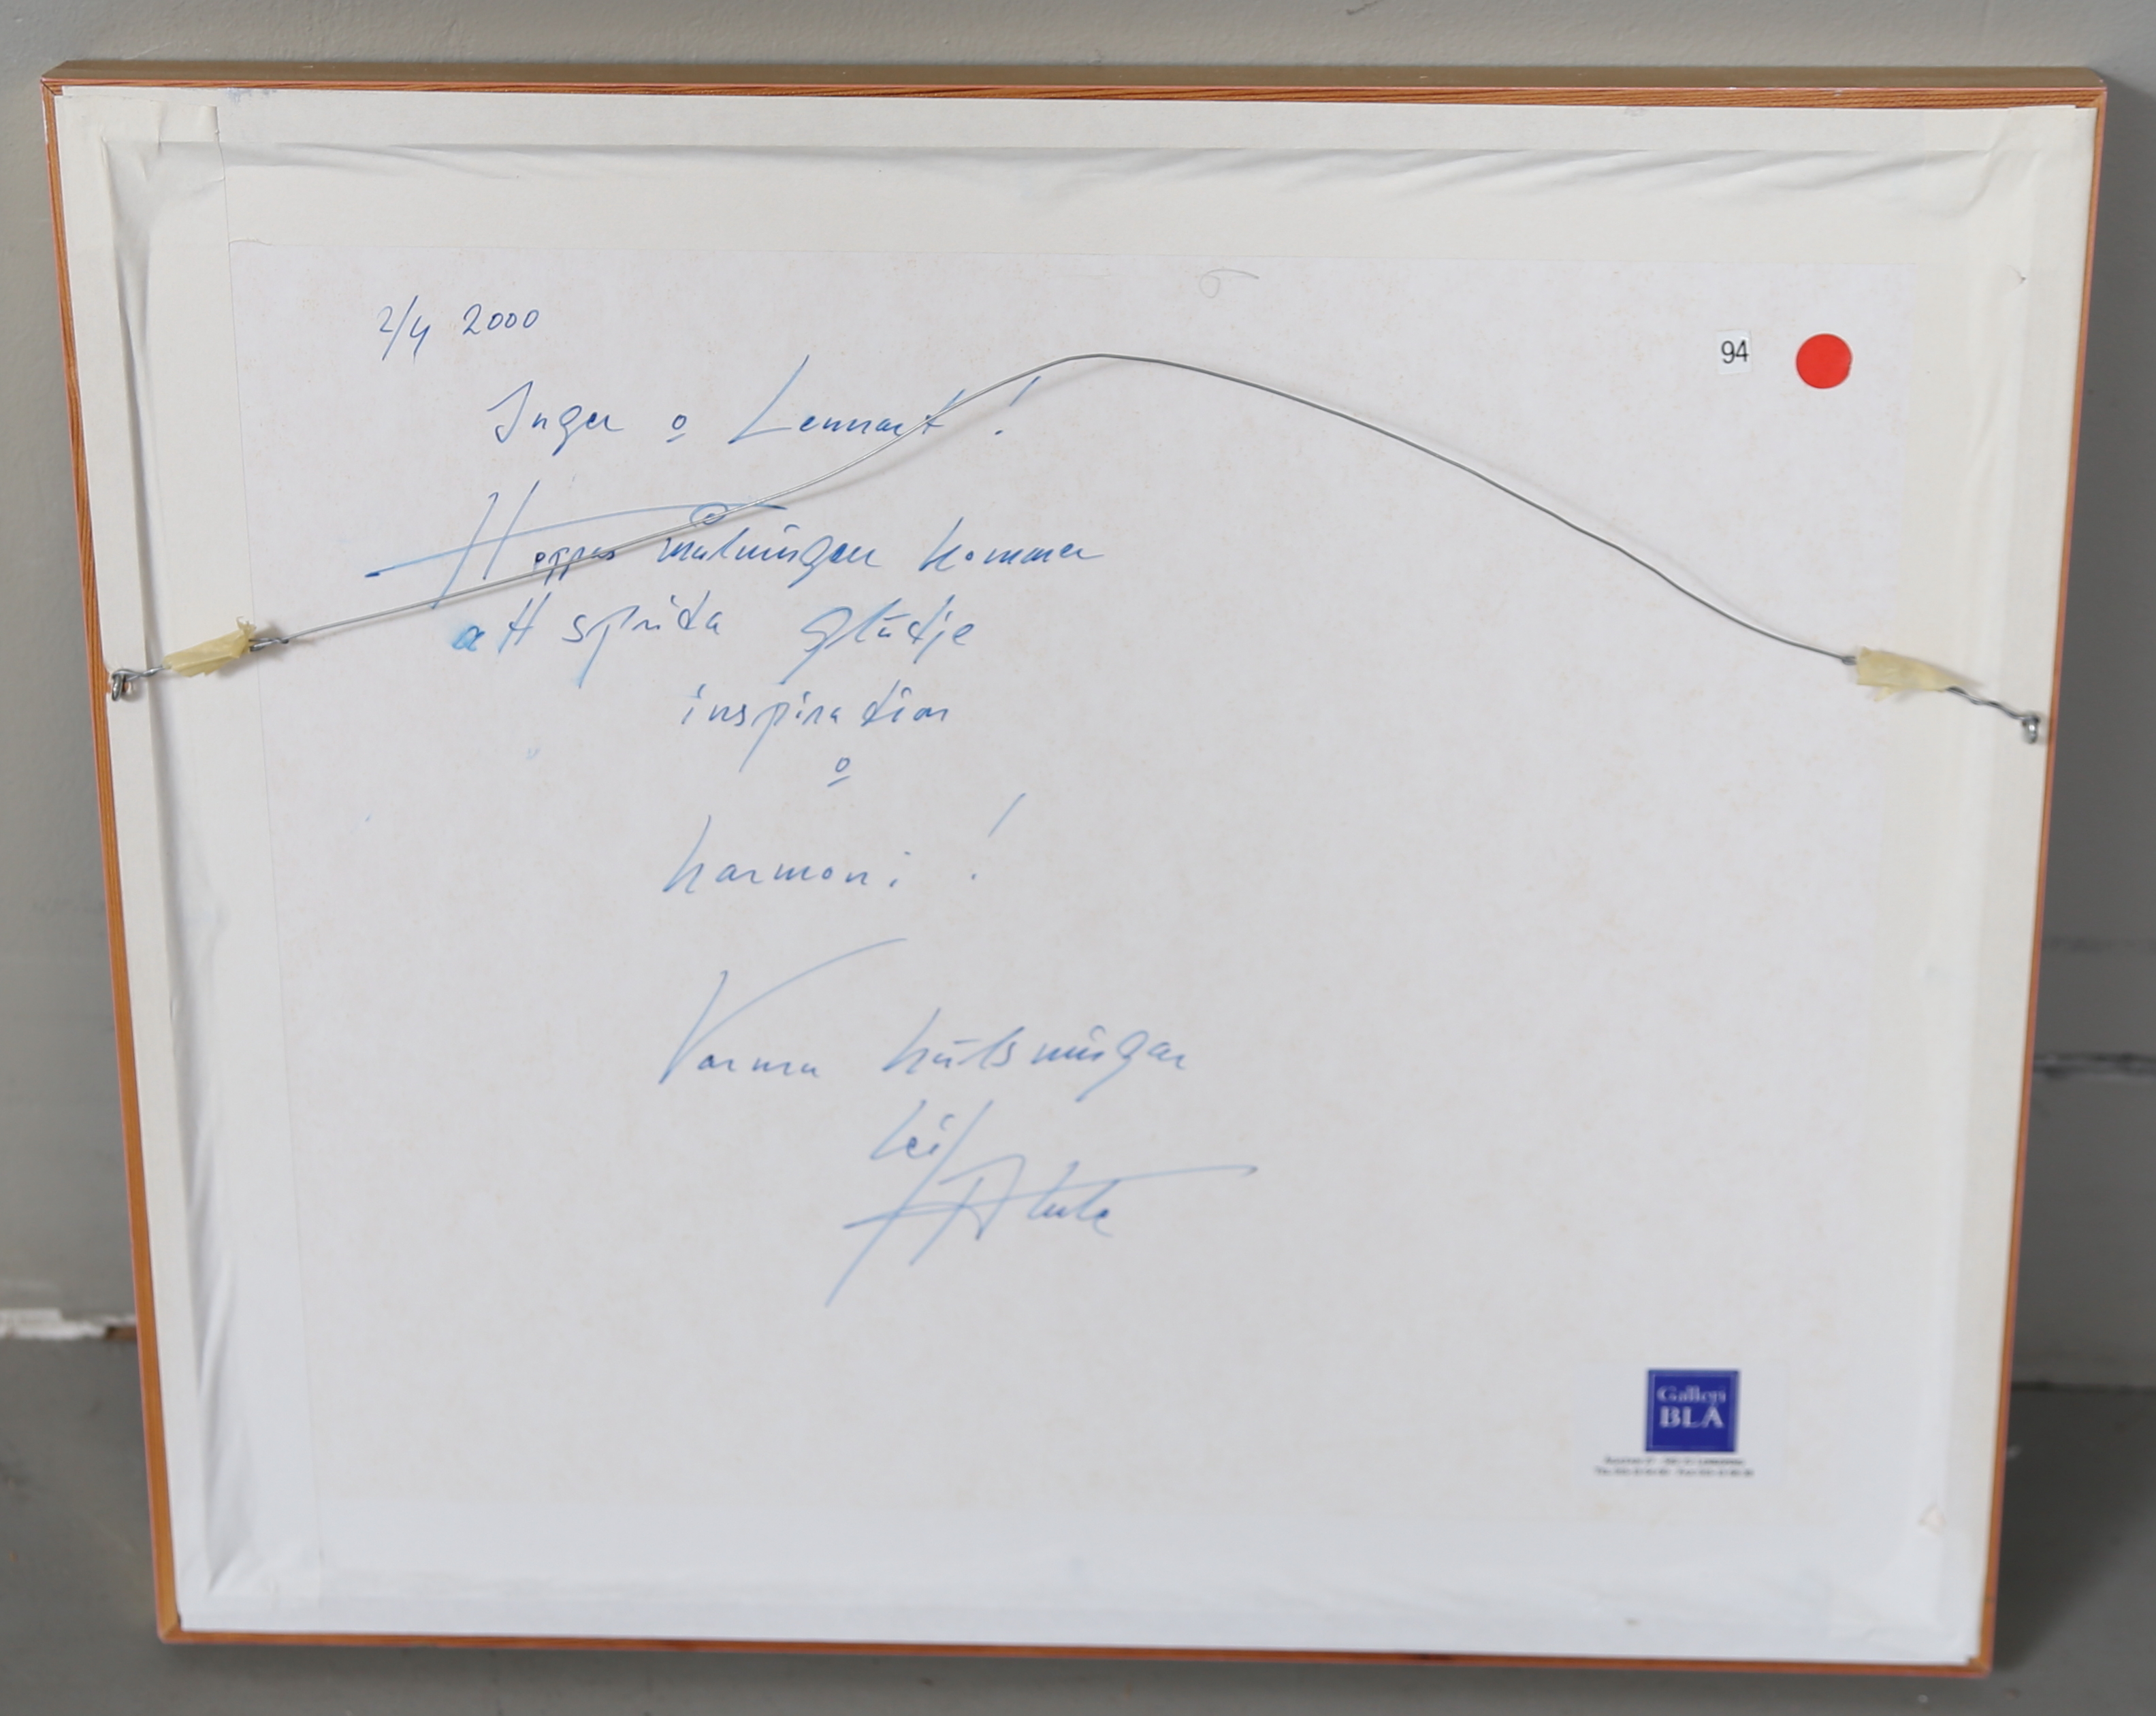 2/4 2000
94
Inger o Lennart!
Hoppas målningen kommer
att sprida glädje
inspiration
o
harmoni!
Varma hälsningar
Leif
Galleri
BLÅ